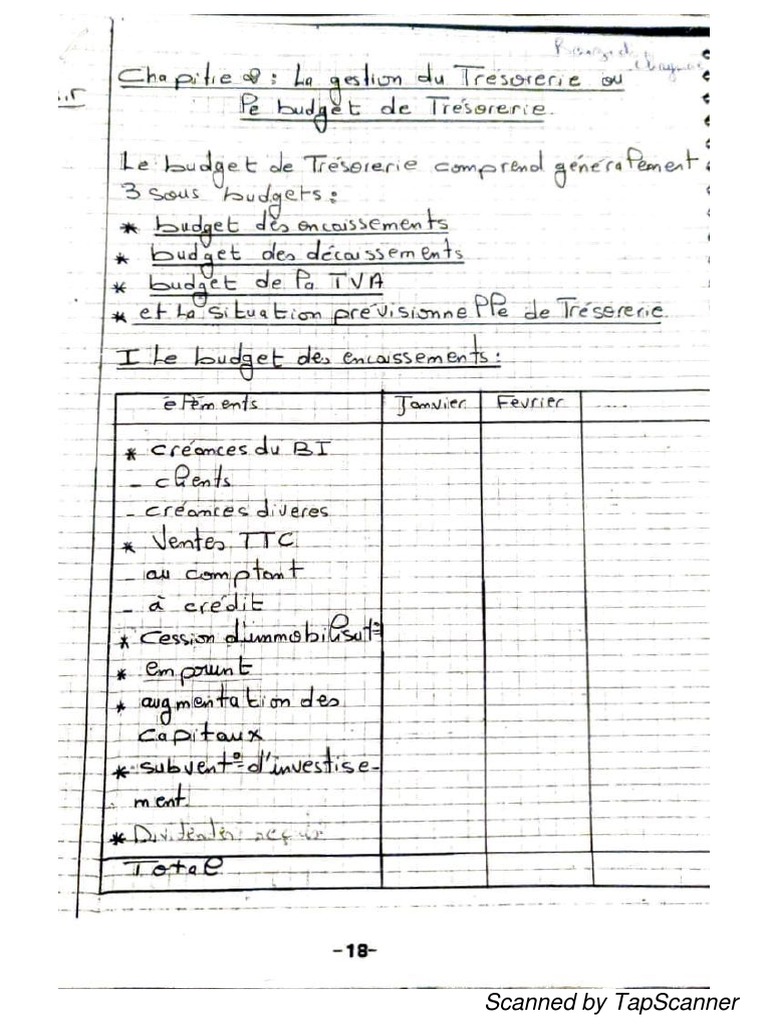 Chapitre 8 : La gestion du Trésorerie ou
le budget de Trésorerie.
Le budget de Trésorerie comprend généralement
3 sous budgets :
* budget des encaissements
* budget des décaissements
* budget de la TVA
* et La situation prévisionnelle de Trésorerie.
I Le budget des encaissements :
éléments Janvier Février
* créances du BI
- clients
- créances diveres
* Ventes TTC
- au comptant
- à crédit
* Cession d'immobilisat°
* emprunt
* augmentation des
capitaux
* subvent° d'investise-
ment.
* Dividendes reçus
Total
-18-
Scanned by TapScanner